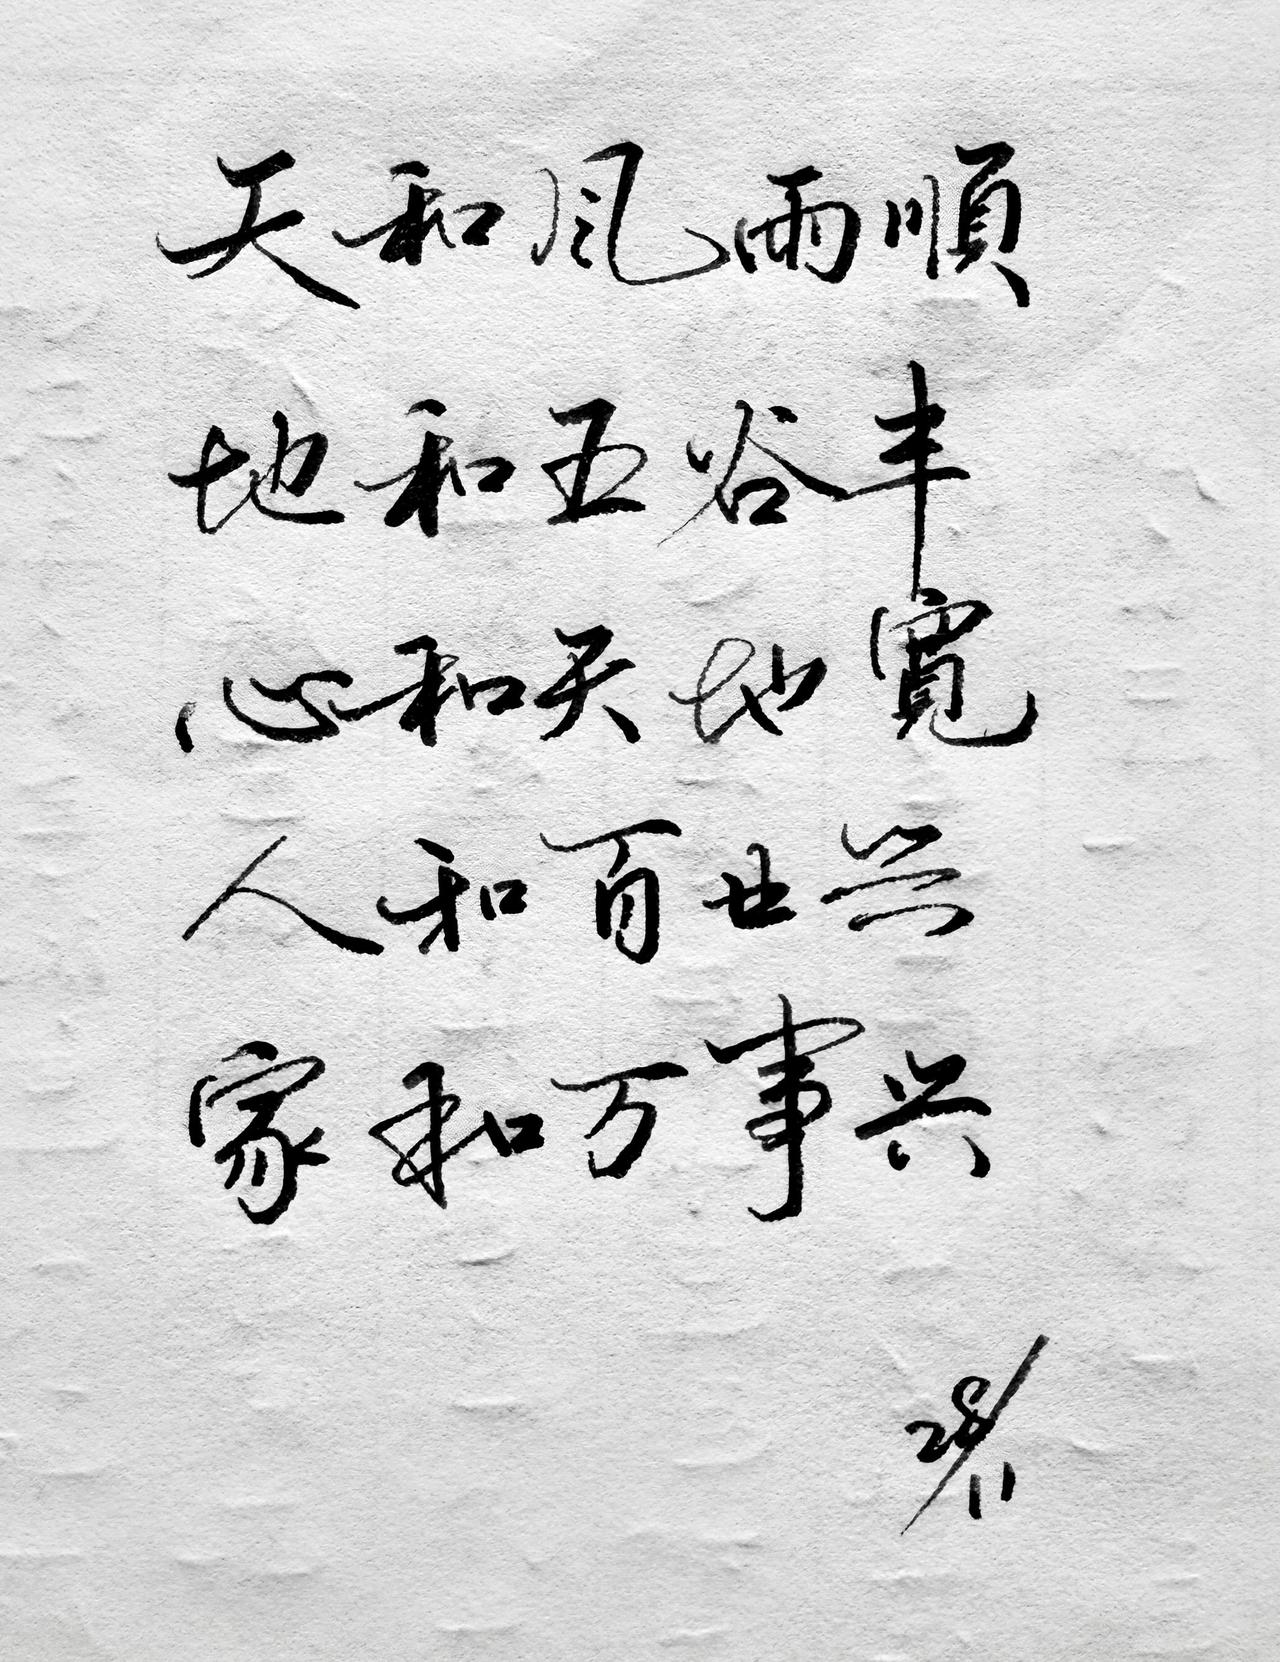 天和风雨順
地和五谷丰
心和天地寬
人和百世兴
家和万事兴
28/11